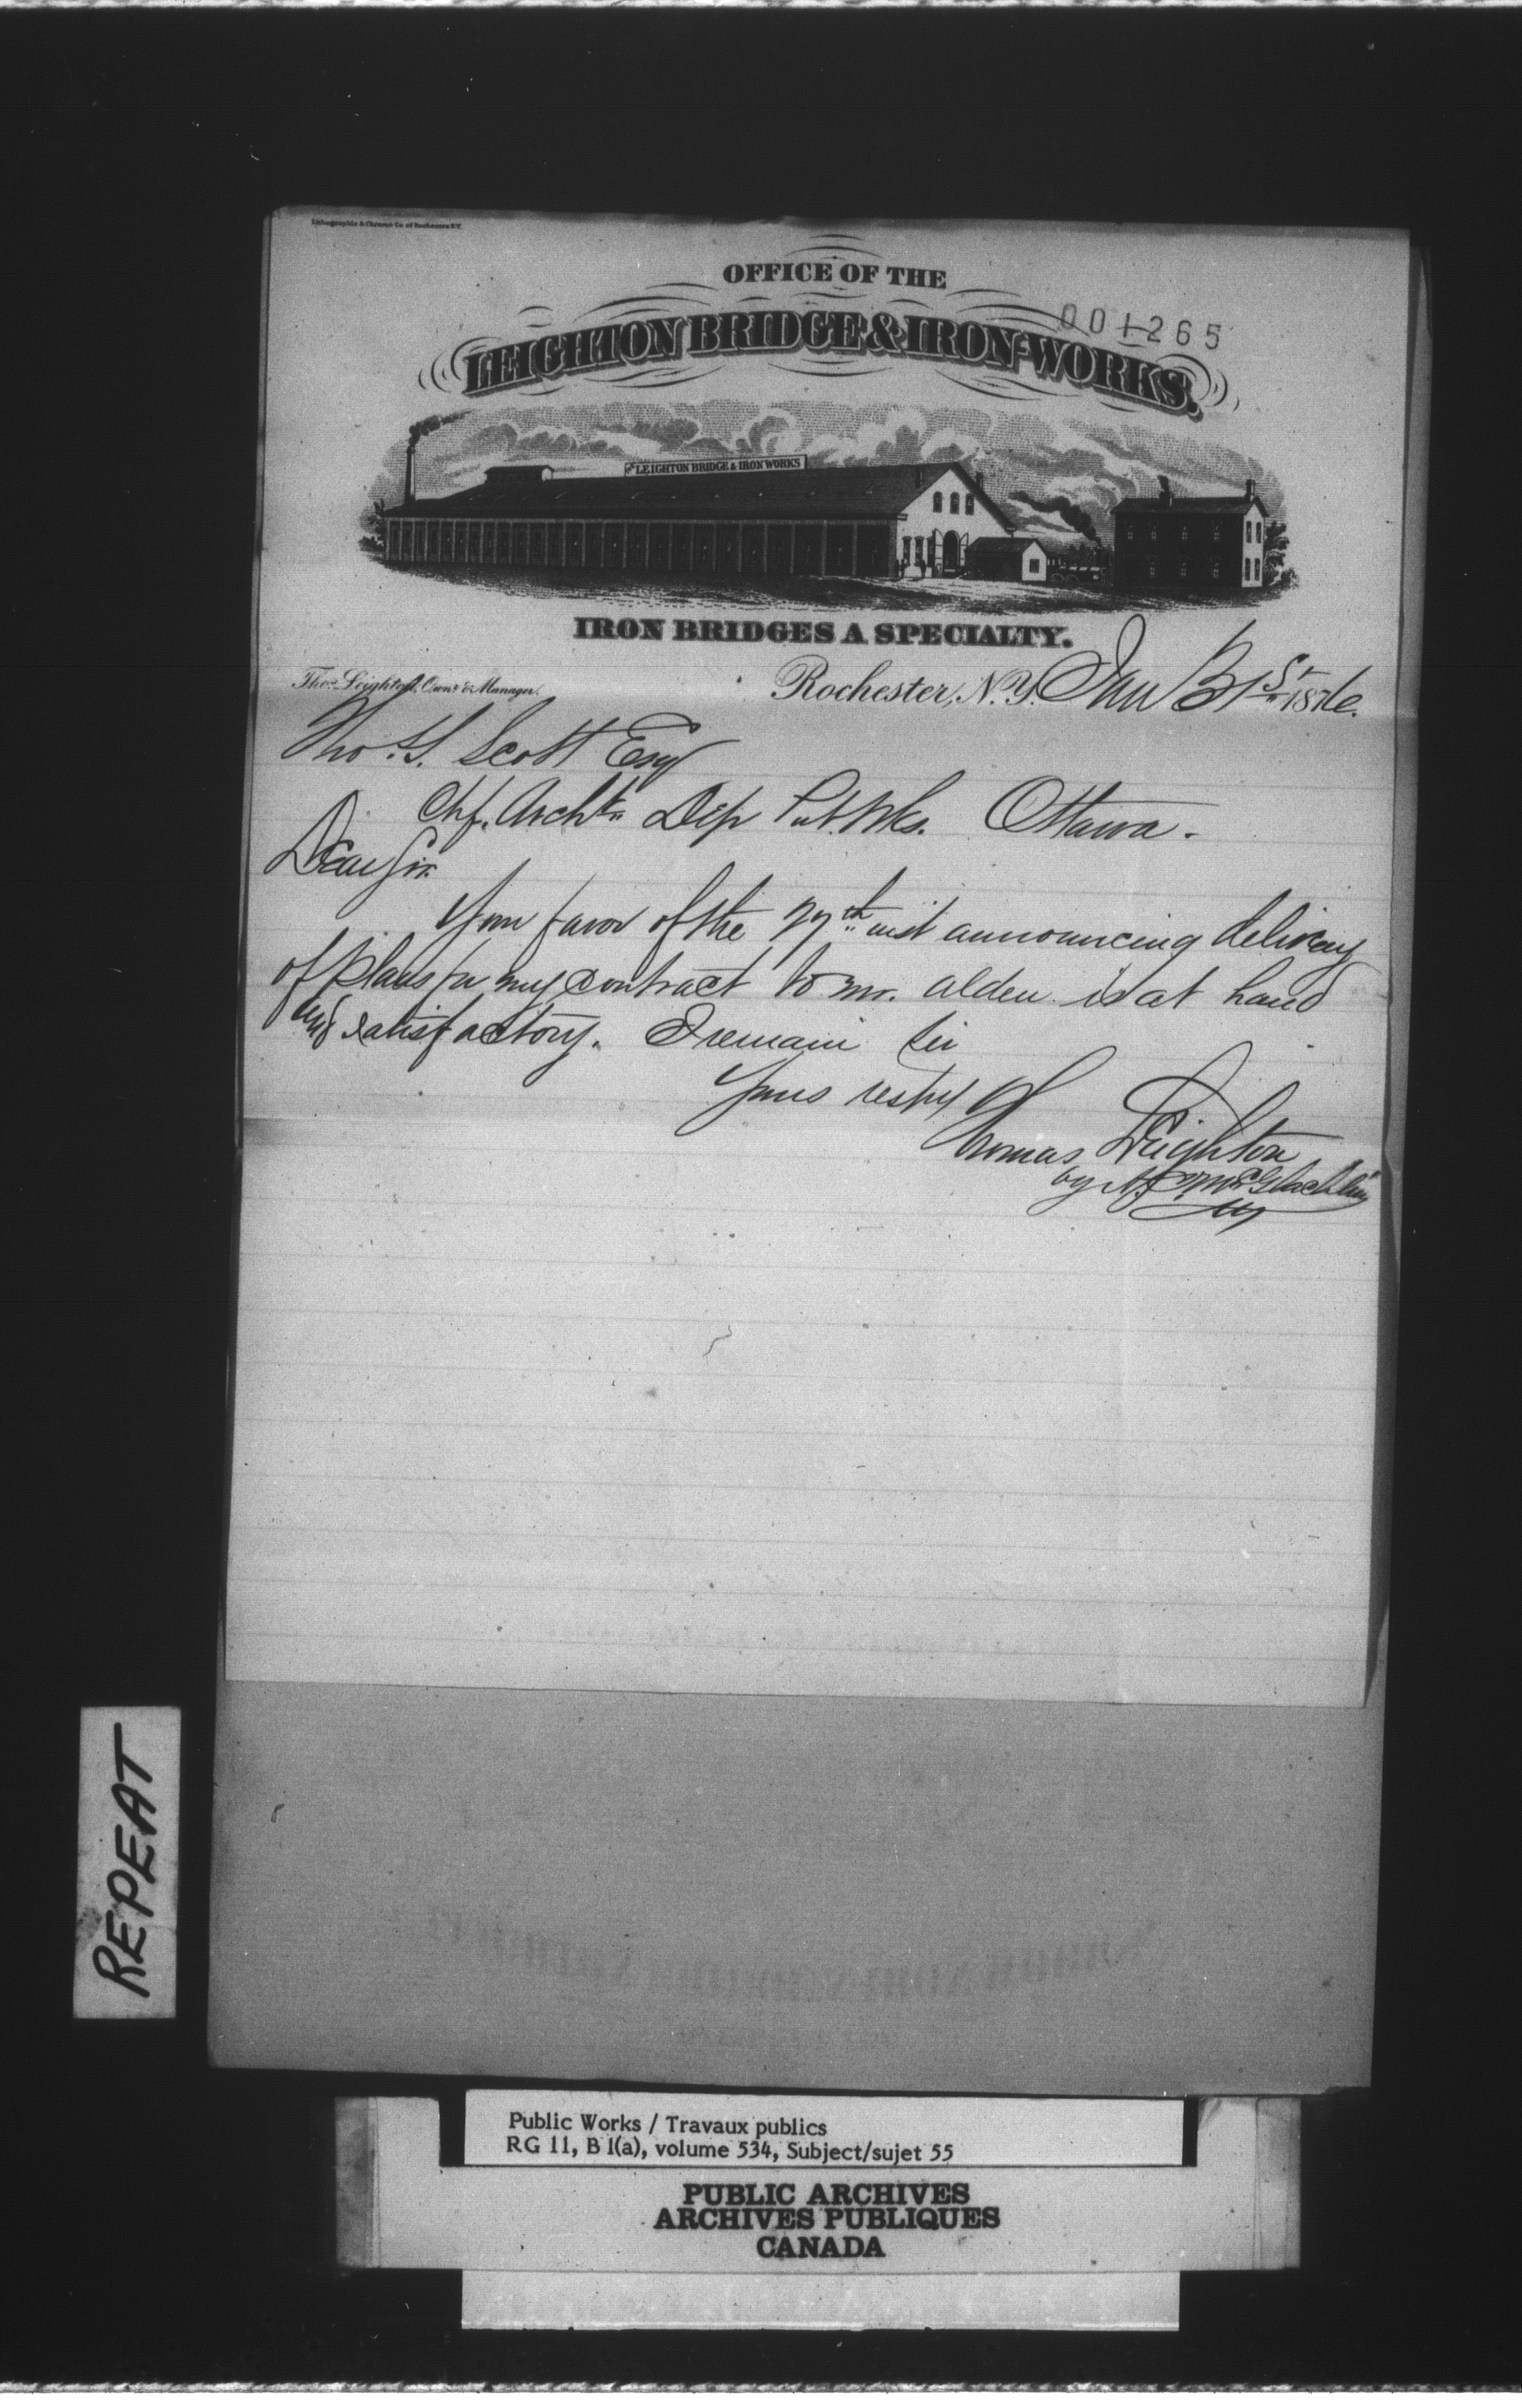 Lithographic & Chromo Co of Rochester N.Y.
OFFICE OF THE
001265
LEIGHTON BRIDGE & IRON-WORKS.
LEIGHTON BRIDGE & IRON WORKS
IRON BRIDGES A SPECIALTY.
Thos. Leighton, Ownr & Manager.
Rochester, N.Y. Jan 31st 1876.
Tho. S. Scott Esq
Chf. Archt. Dep Pub. Wks. Ottawa.
Dear Sir.
Your favor of the 27th inst announcing delivery
of plans for my contract to Mr. Alden is at hand
and satisfactory. I remain Sir
Yours respy
Thomas Leighton
by McGlachlin
REPEAT
Public Works / Travaux publics
RG 11, B 1(a), volume 534, Subject/sujet 55
PUBLIC ARCHIVES
ARCHIVES PUBLIQUES
CANADA